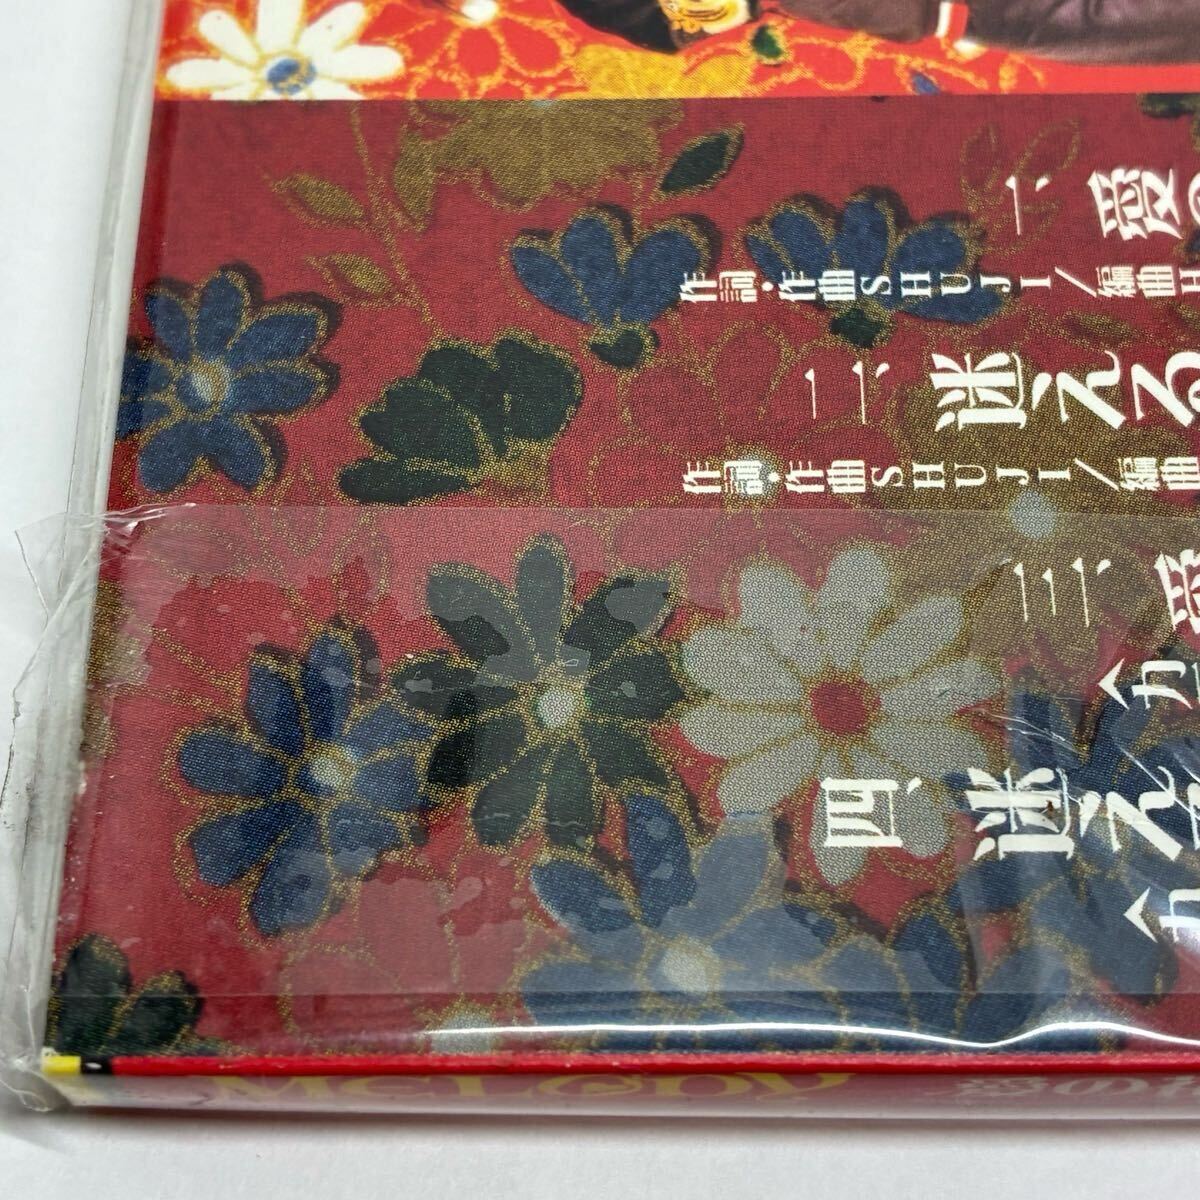 一、愛の
作詞・作曲SHUJI/編曲H
二、迷える
作詞・作曲SHUJI/編曲
三、愛
〈カ
四、迷え
〈カ
MeLODy 愛の